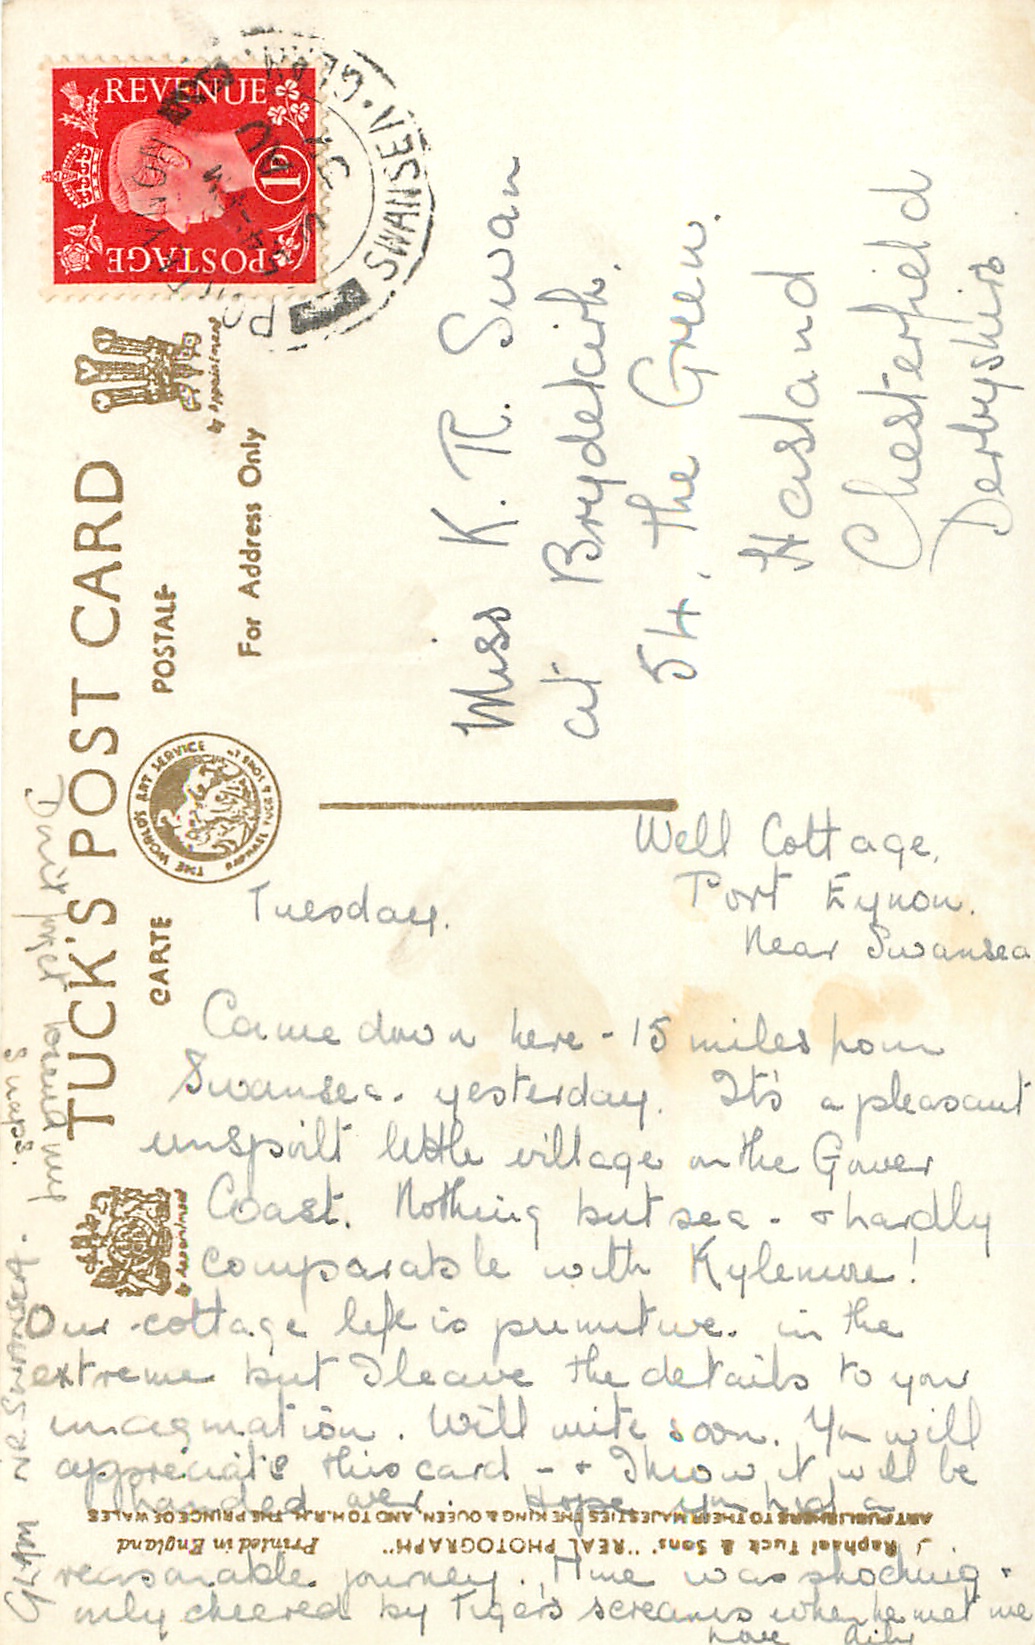 REVENUE
1D
POSTAGE
PORT EYNON
SWANSEA. GLAM.
TUCK'S POST CARD
CARTE POSTALE
For Address Only
by appointment
THE WORLDS ART SERVICE
RAPHAEL TUCK & SONS LTD
by appointment
Miss K. R. Swan
at Brydekirk,
54, the Green.
Hasland
Chesterfield
Derbyshire
Well Cottage,
Port Eynon.
Near Swansea
Tuesday.
Came down here - 15 miles from
Swansea - yesterday. It's a pleasant
unspoilt little village on the Gower
Coast. Nothing but sea - & hardly
comparable with Kylemore!
Our cottage life is primitive in the
extreme but I leave the details to your
imagination. Will write soon. You will
appreciate this card - & I know it will be
handed over. Hope you had a
reasonable journey. Mine was shocking -
only cheered by Tiger's screams when he met me
love
Don't forget to send my
snaps.
GLAM NR SWANSEA.
J Raphael Tuck & Sons' "REAL PHOTOGRAPH" Printed in England
ART PUBLISHERS TO THEIR MAJESTIES THE KING & QUEEN, AND TO H.R.H. THE PRINCE OF WALES